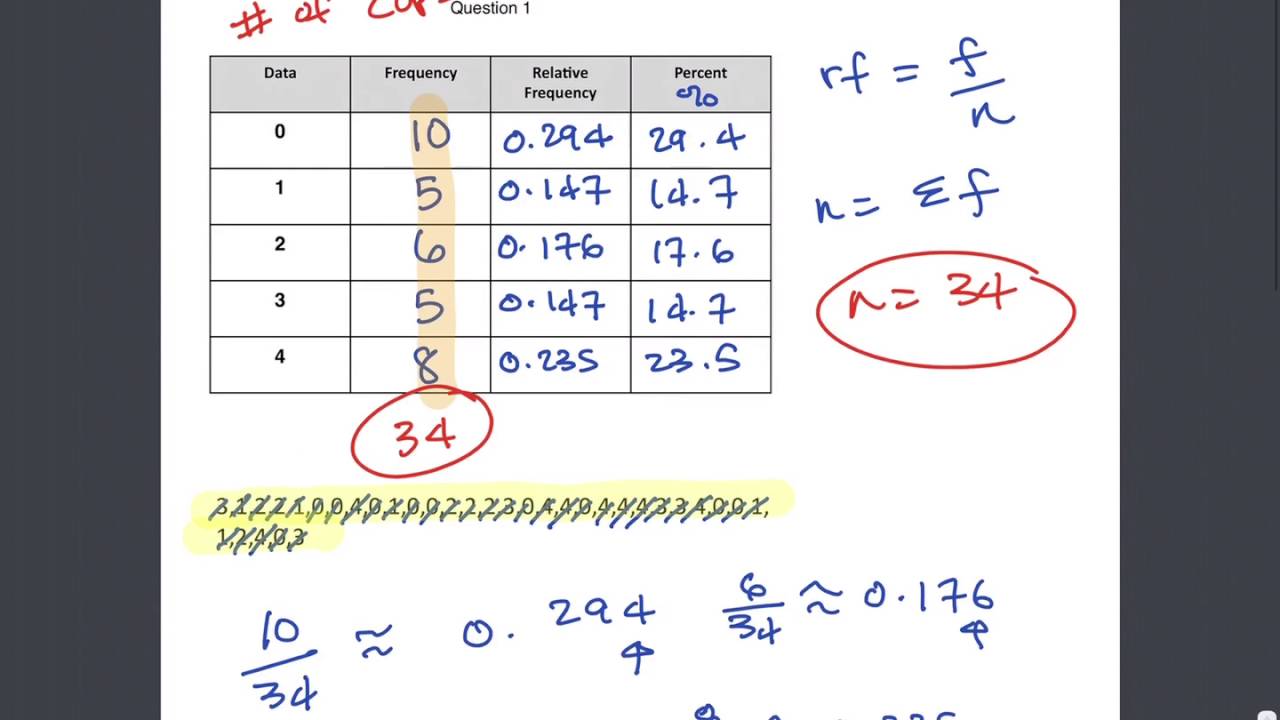 # of
Question 1
Data Frequency Relative Frequency Percent %
0 10 0.294 29.4
1 5 0.147 14.7
2 6 0.176 17.6
3 5 0.147 14.7
4 8 0.235 23.5
34
rf = f/n
n = Σf
n = 34
3,1,2,2,1,0,0,4,0,1,0,0,2,2,2,3,0,4,4,0,4,4,4,3,3,4,0,0,1,
1,2,4,0,3
10/34 ≈ 0.294
6/34 ≈ 0.176